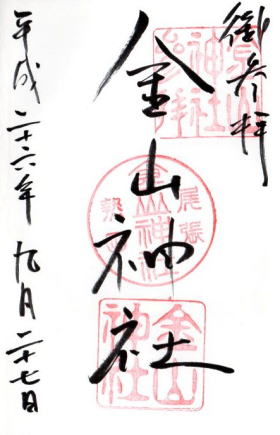 御参拝
金山神社
平成二十六年九月二十七日
尾張
金山神社
金山
神社